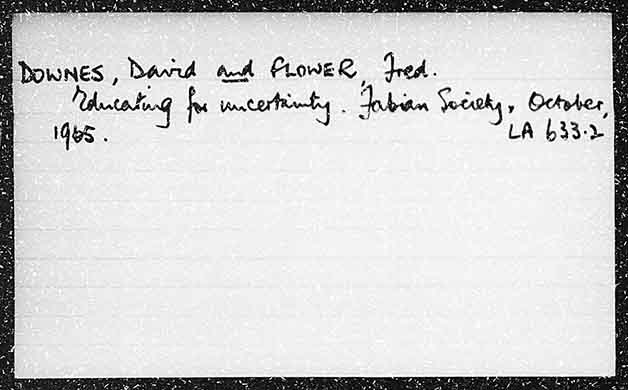 DOWNES, David and FLOWER, Fred.
Educating for uncertainty. Fabian Society, October,
1965.
LA 633.2